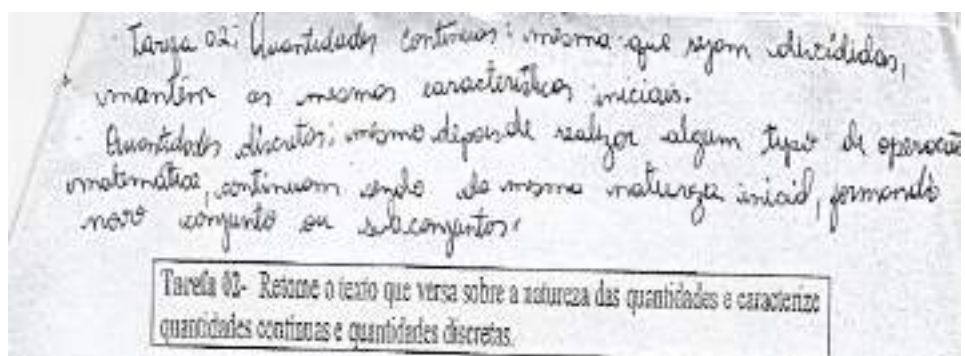 Tarefa 02: Quantidades contínuas: mesmo que sejam divididas,
mantém as mesmas características iniciais.
Quantidades discretas: mesmo depois de realizar algum tipo de operação
matemática, continuam sendo da mesma natureza inicial, formando
novo conjunto ou subconjuntos.
Tarefa 02- Retome o texto que versa sobre a natureza das quantidades e caracterize
quantidades contínuas e quantidades discretas.